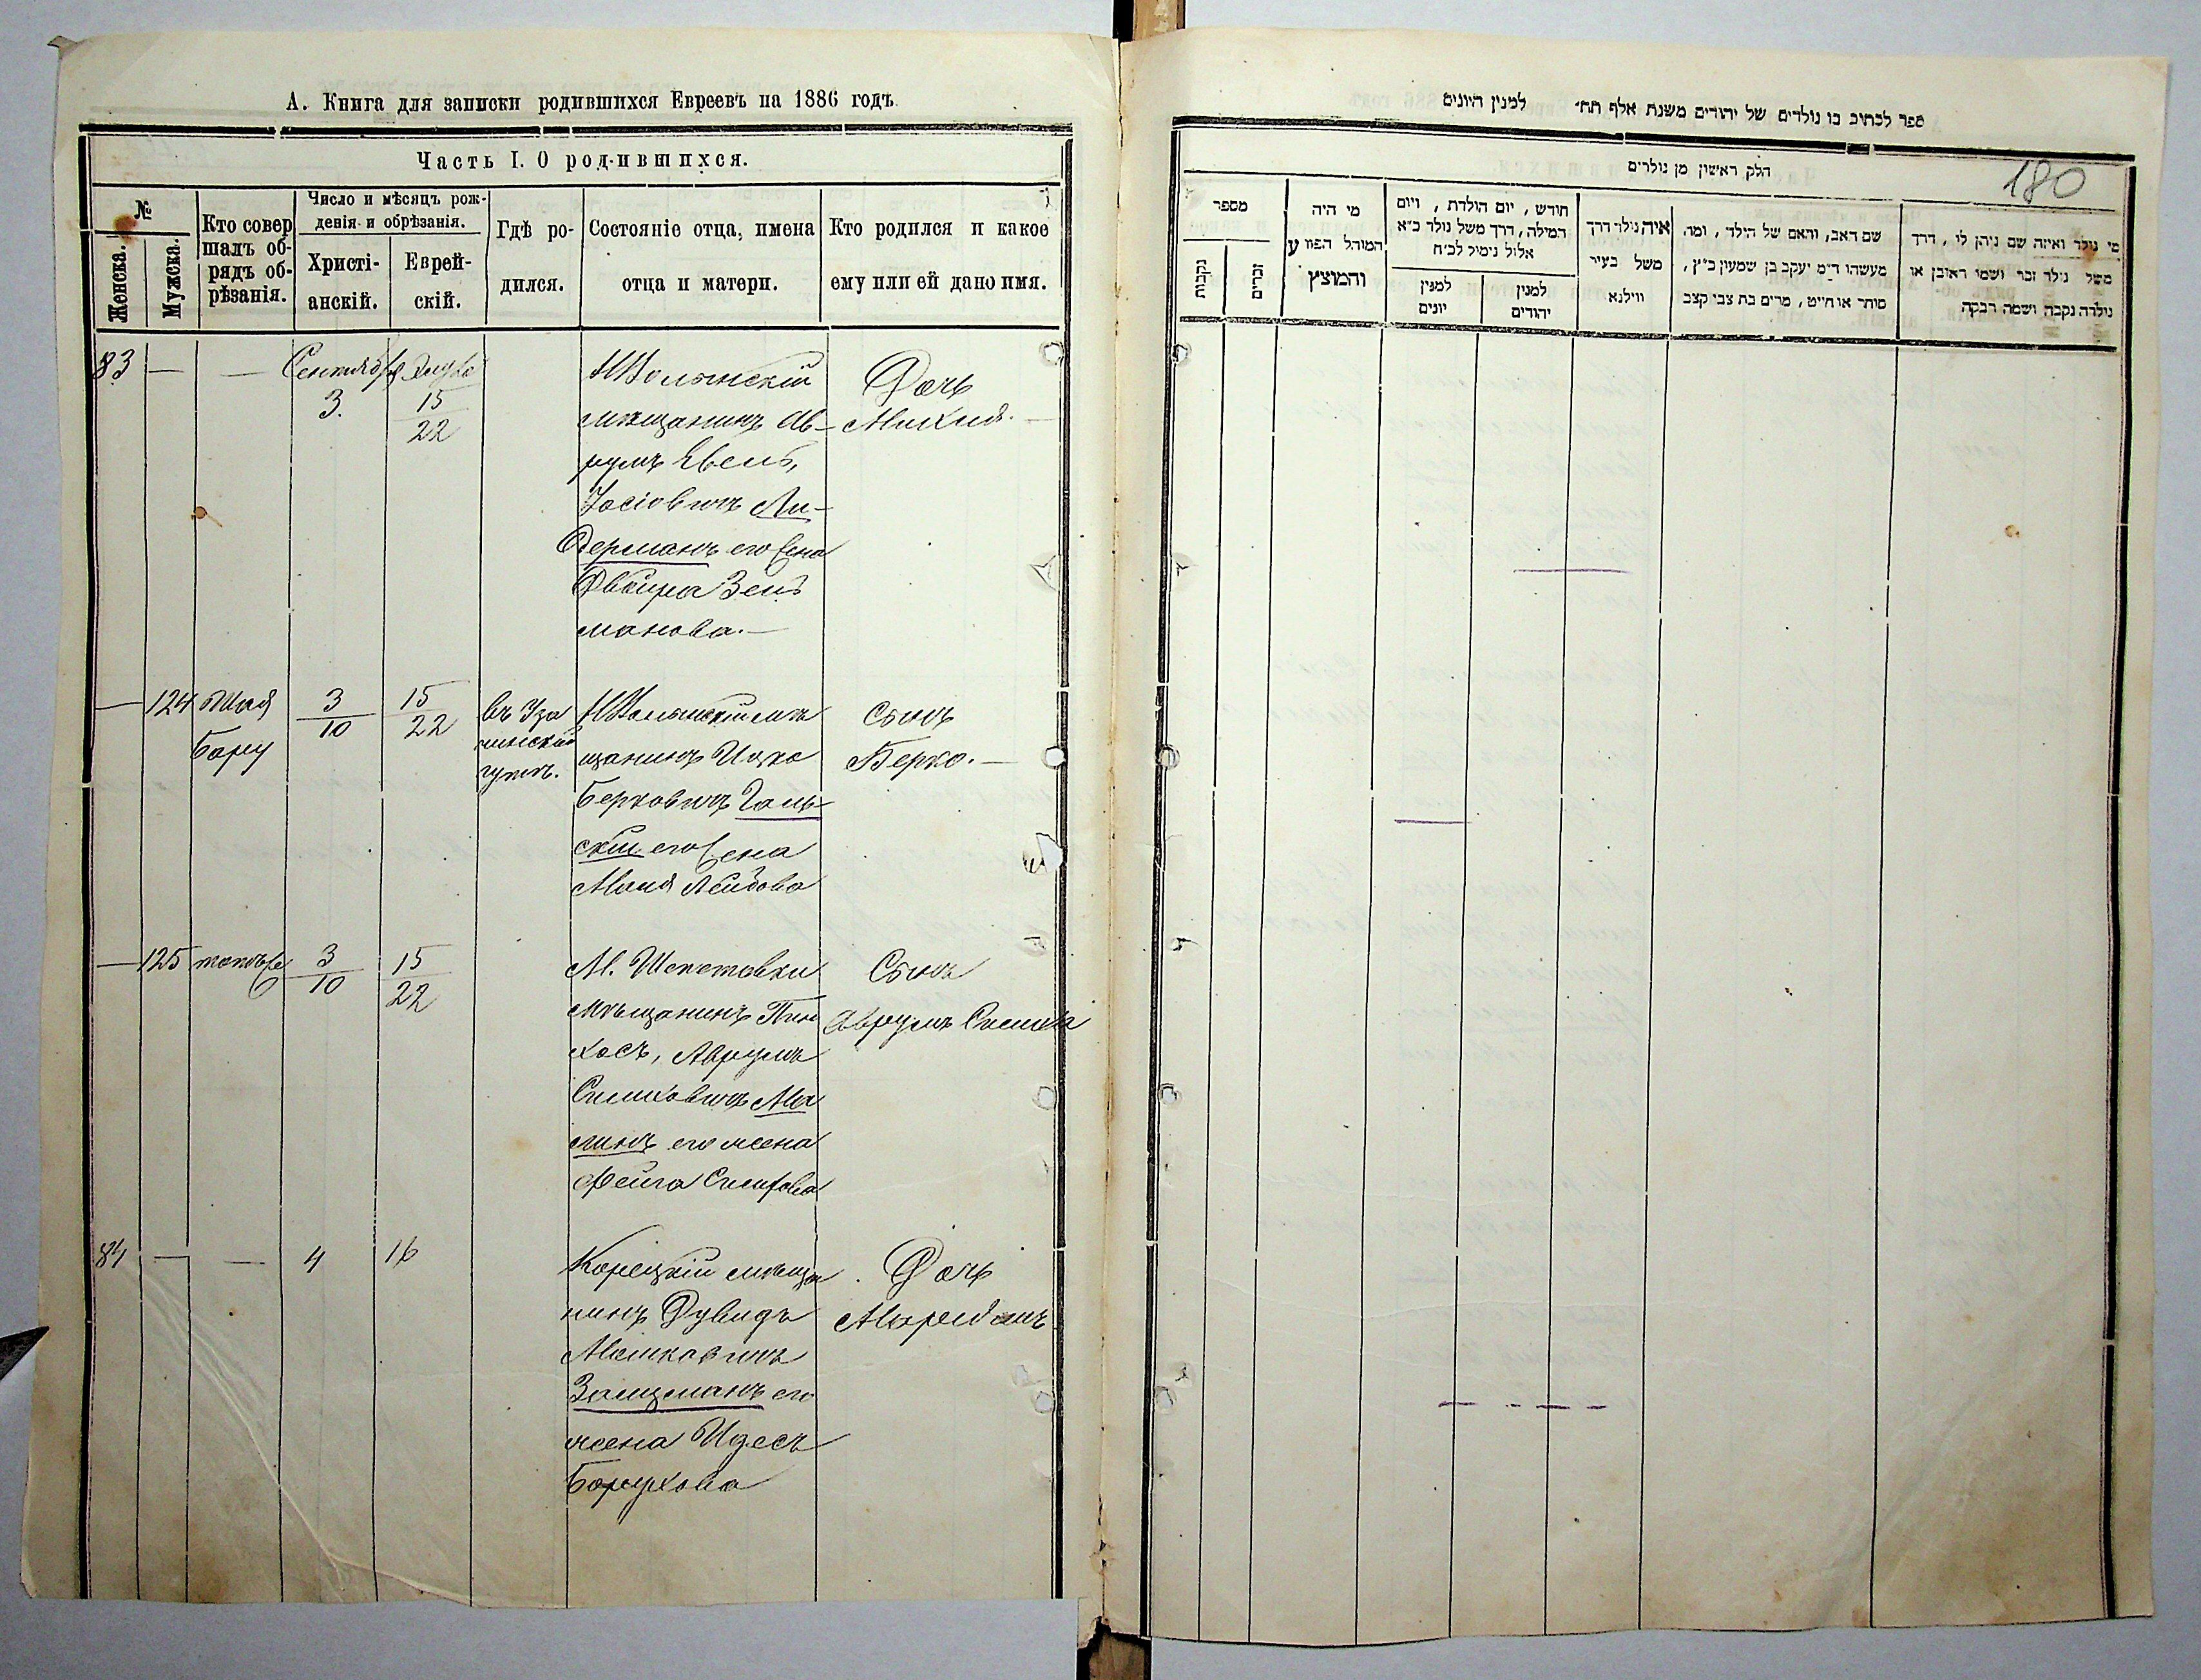 А. Книга для записки родившихся Евреевъ на 1886 годъ
Часть I. О родившихся.
№
Женска.
Мужска.
Кто совер
шалъ об-
рядъ об-
рѣзанія.
Число и мѣсяцъ рож-
денія и обрѣзанія.
Христі-
анскій.
Еврей-
скій.
Гдѣ ро-
дился.
Состояніе отца, имена
отца и матери.
Кто родился и какое
ему или ей дано имя.
83 — — Сентября
3.
15
22
НВолынскій
мѣщанинъ Ав-
румъ
Іосіовичъ Ли-
дерманъ его жена
Двойра Зель
манова.—
Дочь
— 124 Шая
Бару
3
10
15
22
НВолынскій мѣ
щанинъ
Берковичъ Галь-
скій его жена
Маля Лейбова
Сынъ
Берко.—
— 125 тотъже
3
10
15
22
М. Шепетовки
мѣщанинъ Пин
хосъ, Аврумъ
его жена
Фейга
Сынъ
Аврумъ
84 — — 4 16
Корецкій мѣща
нинъ Дувидъ
Мошковичъ
Залцманъ его
жена Идесъ
Борухова
Дочь
Марямъ
ספר לכתוב בו נולדים של יהודים משנת אלף תת״ למנין היונים
180
חלק ראשון מן נולדים
מספר
נקבות
זכרים
מי היה
המוהל הפורע
והמוצץ
חודש, יום הולדת, ויום
המילה, דרך משל נולד כ״א
אלול נימול לכ״ח
למנין
יונים
למנין
יהודים
איה נולד דרך
משל בעיר
ווילנא
שם האב, והאם של הילד, ומה
מעשהו ד״מ יעקב בן שמעון כ״ץ,
סוחר או חייט, מרים בת צבי קצב
מי נולד ואיזה שם ניתן לו, דרך
משל נולד זכר ושמו ראובן או
נולדה נקבה ושמה רבקה